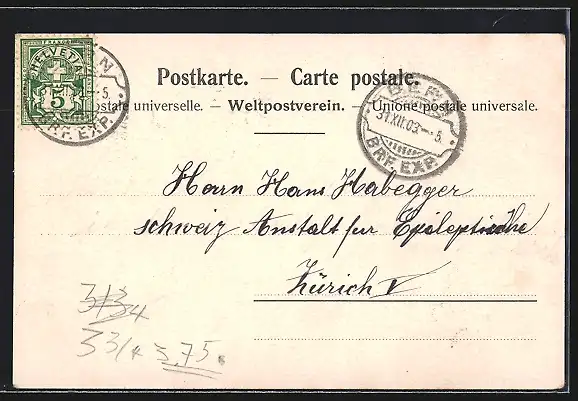 HELVETIA
5
BRF. EXP.
Postkarte. — Carte postale.
postale universelle. — Weltpostverein. — Unione postale universale.
BERN
31.XII.03.-5.
BRF. EXP.
Herrn Hans Habegger
schweiz Anstalt fur Epileptische
Zürich V
313
34
33/4 3.75.